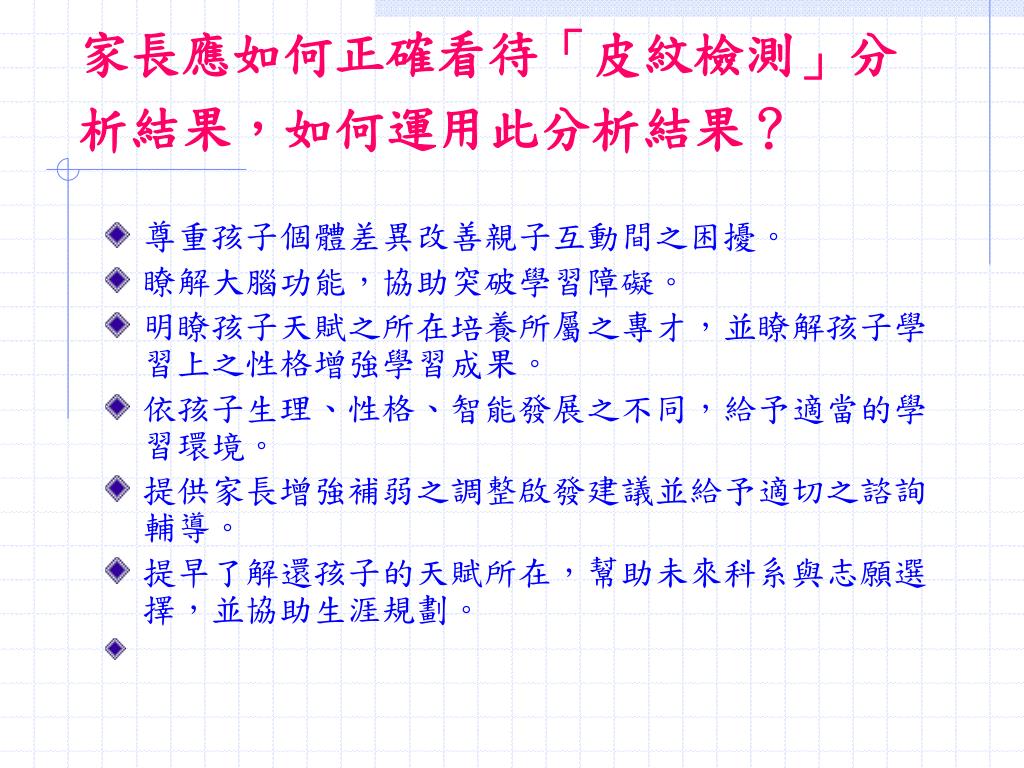 家長應如何正確看待「皮紋檢測」分
析結果，如何運用此分析結果？
尊重孩子個體差異改善親子互動間之困擾。
瞭解大腦功能，協助突破學習障礙。
明瞭孩子天賦之所在培養所屬之專才，並瞭解孩子學
習上之性格增強學習成果。
依孩子生理、性格、智能發展之不同，給予適當的學
習環境。
提供家長增強補弱之調整啟發建議並給予適切之諮詢
輔導。
提早了解還孩子的天賦所在，幫助未來科系與志願選
擇，並協助生涯規劃。